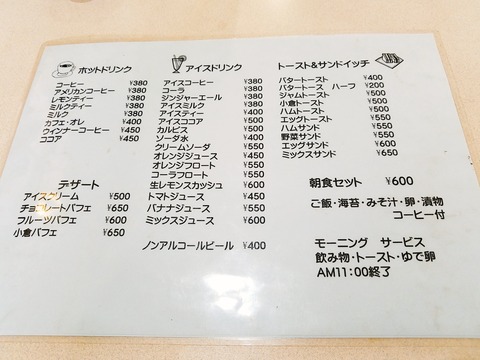 ホットドリンク
コーヒー ¥380
アメリカンコーヒー ¥380
レモンティー ¥380
ミルクティー ¥380
ミルク ¥380
カフェ・オレ ¥400
ウィンナーコーヒー ¥450
ココア ¥450
デザート
アイスクリーム ¥500
チョコレートパフェ ¥650
フルーツパフェ ¥600
小倉パフェ ¥650
アイスドリンク
アイスコーヒー ¥380
コーラ ¥380
ジンジャーエール ¥380
アイスミルク ¥380
アイスティー
アイスココア
カルピス
ソーダ水
クリームソーダ ¥550
オレンジジュース ¥450
オレンジフロート ¥550
コーラフロート ¥550
生レモンスカッシュ ¥600
トマトジュース ¥450
バナナジュース ¥550
ミックスジュース ¥600
ノンアルコールビール ¥400
トースト&サンドイッチ
バタートースト ¥400
バタートース ハーフ ¥200
ジャムトースト ¥500
小倉トースト ¥500
ハムトースト
エッグトースト ¥550
ハムサンド
野菜サンド ¥550
エッグサンド ¥600
ミックスサンド ¥650
朝食セット ¥600
ご飯・海苔・みそ汁・卵・漬物
コーヒー付
モーニング サービス
飲み物・トースト・ゆで卵
AM11:00終了